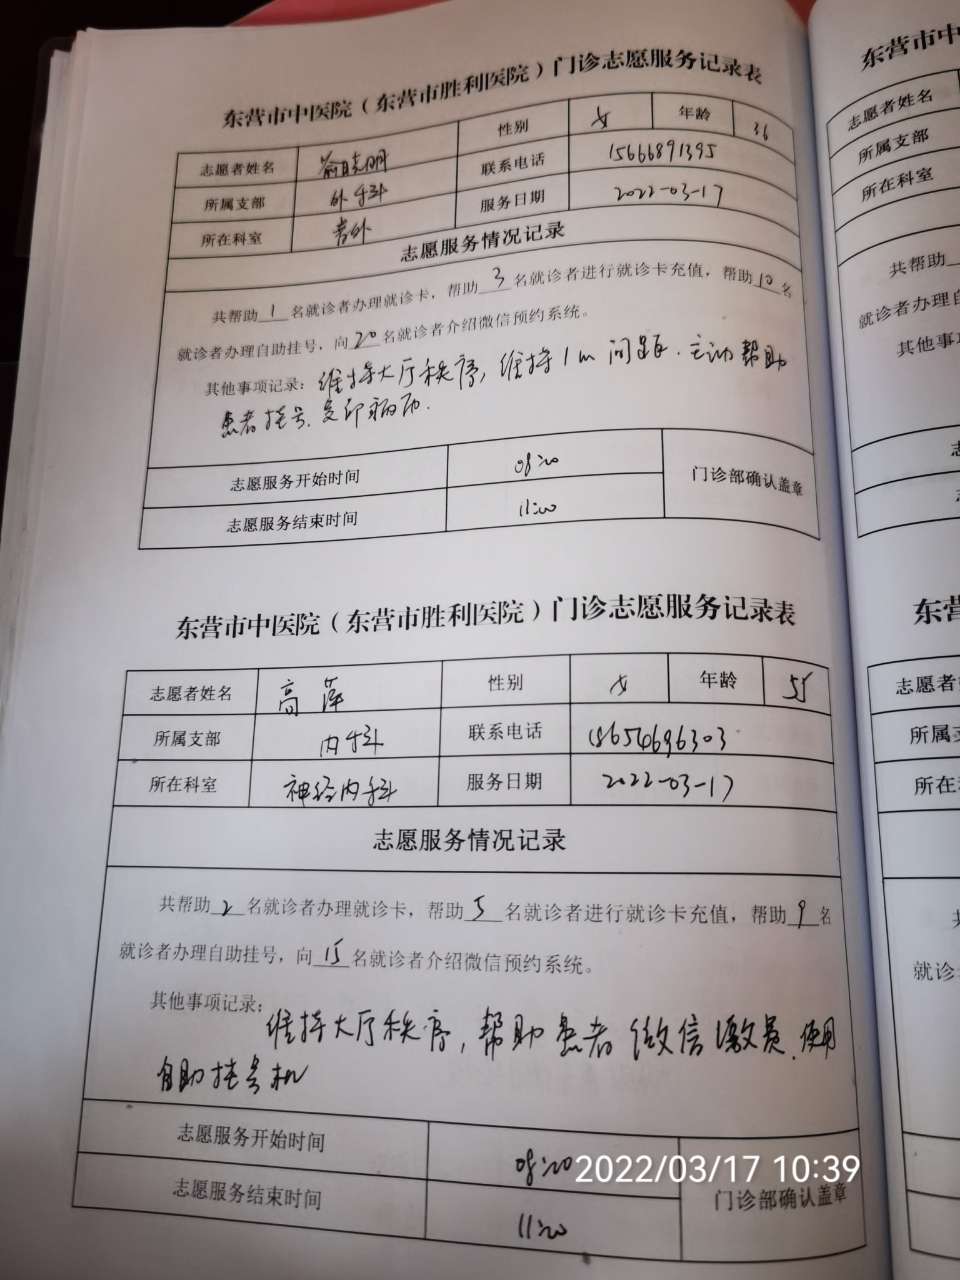 东营市中医院（东营市胜利医院）门诊志愿服务记录表
志愿者姓名 性别 女 年龄 36
所属支部 外科 联系电话 15666891395
所在科室 普外 服务日期 2022-03-17
志愿服务情况记录
共帮助1名就诊者办理就诊卡，帮助3名就诊者进行就诊卡充值，帮助10名
就诊者办理自助挂号，向20名就诊者介绍微信预约系统。
其他事项记录：维持大厅秩序，维持1m间距．主动帮助
患者挂号、复印病历．
志愿服务开始时间 08:20
门诊部确认盖章
志愿服务结束时间 11:20
东营市中医院（东营市胜利医院）门诊志愿服务记录表
志愿者姓名 高萍 性别 女 年龄 55
所属支部 内科 联系电话 18654696303
所在科室 神经内科 服务日期 2022-03-17
志愿服务情况记录
共帮助2名就诊者办理就诊卡，帮助5名就诊者进行就诊卡充值，帮助9名
就诊者办理自助挂号，向15名就诊者介绍微信预约系统。
其他事项记录：维持大厅秩序，帮助患者微信缴费、使用
自助挂号机
志愿服务开始时间 08:20
2022/03/17 10:39
门诊部确认盖章
志愿服务结束时间 11:20
东营市中
志愿者姓名
所属支部
所在科室
共帮助
就诊者办理自
其他事
东营
志愿者
所属支
所在科
共
就诊